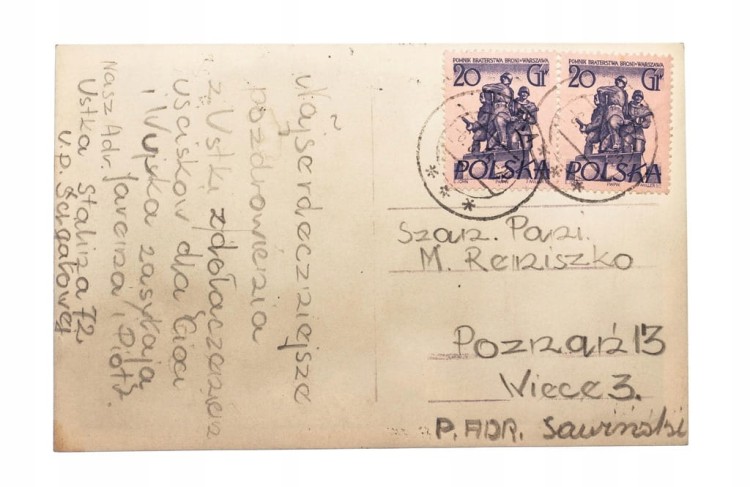 Najserdeczniejsze
pozdrowienia
z Ustki z dołączeniem
uścisków dla Cioci
i Wujka zasyłają
Janeczka i Piotr.
Nasz Adr.
Ustka Stalina 72
u.p.
POMNIK BRATERSTWA BRONI•WARSZAWA
20 Gr
POLSKA
POMNIK BRATERSTWA BRONI•WARSZAWA
20 Gr
POLSKA
Szan. Pani.
M. Reniszko
Poznań 13
Wiece 3.
P. ADR. Sawiński